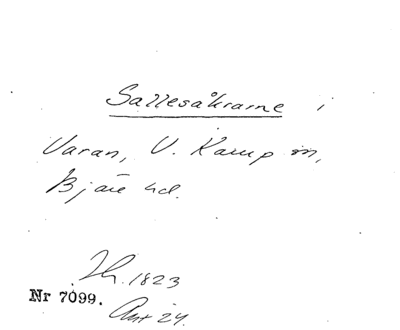 Sallesåkrarne i
Varan, V. Karup sn,
Bjäre hd.
Th. 1823
Nr 7099.
Akt 24.